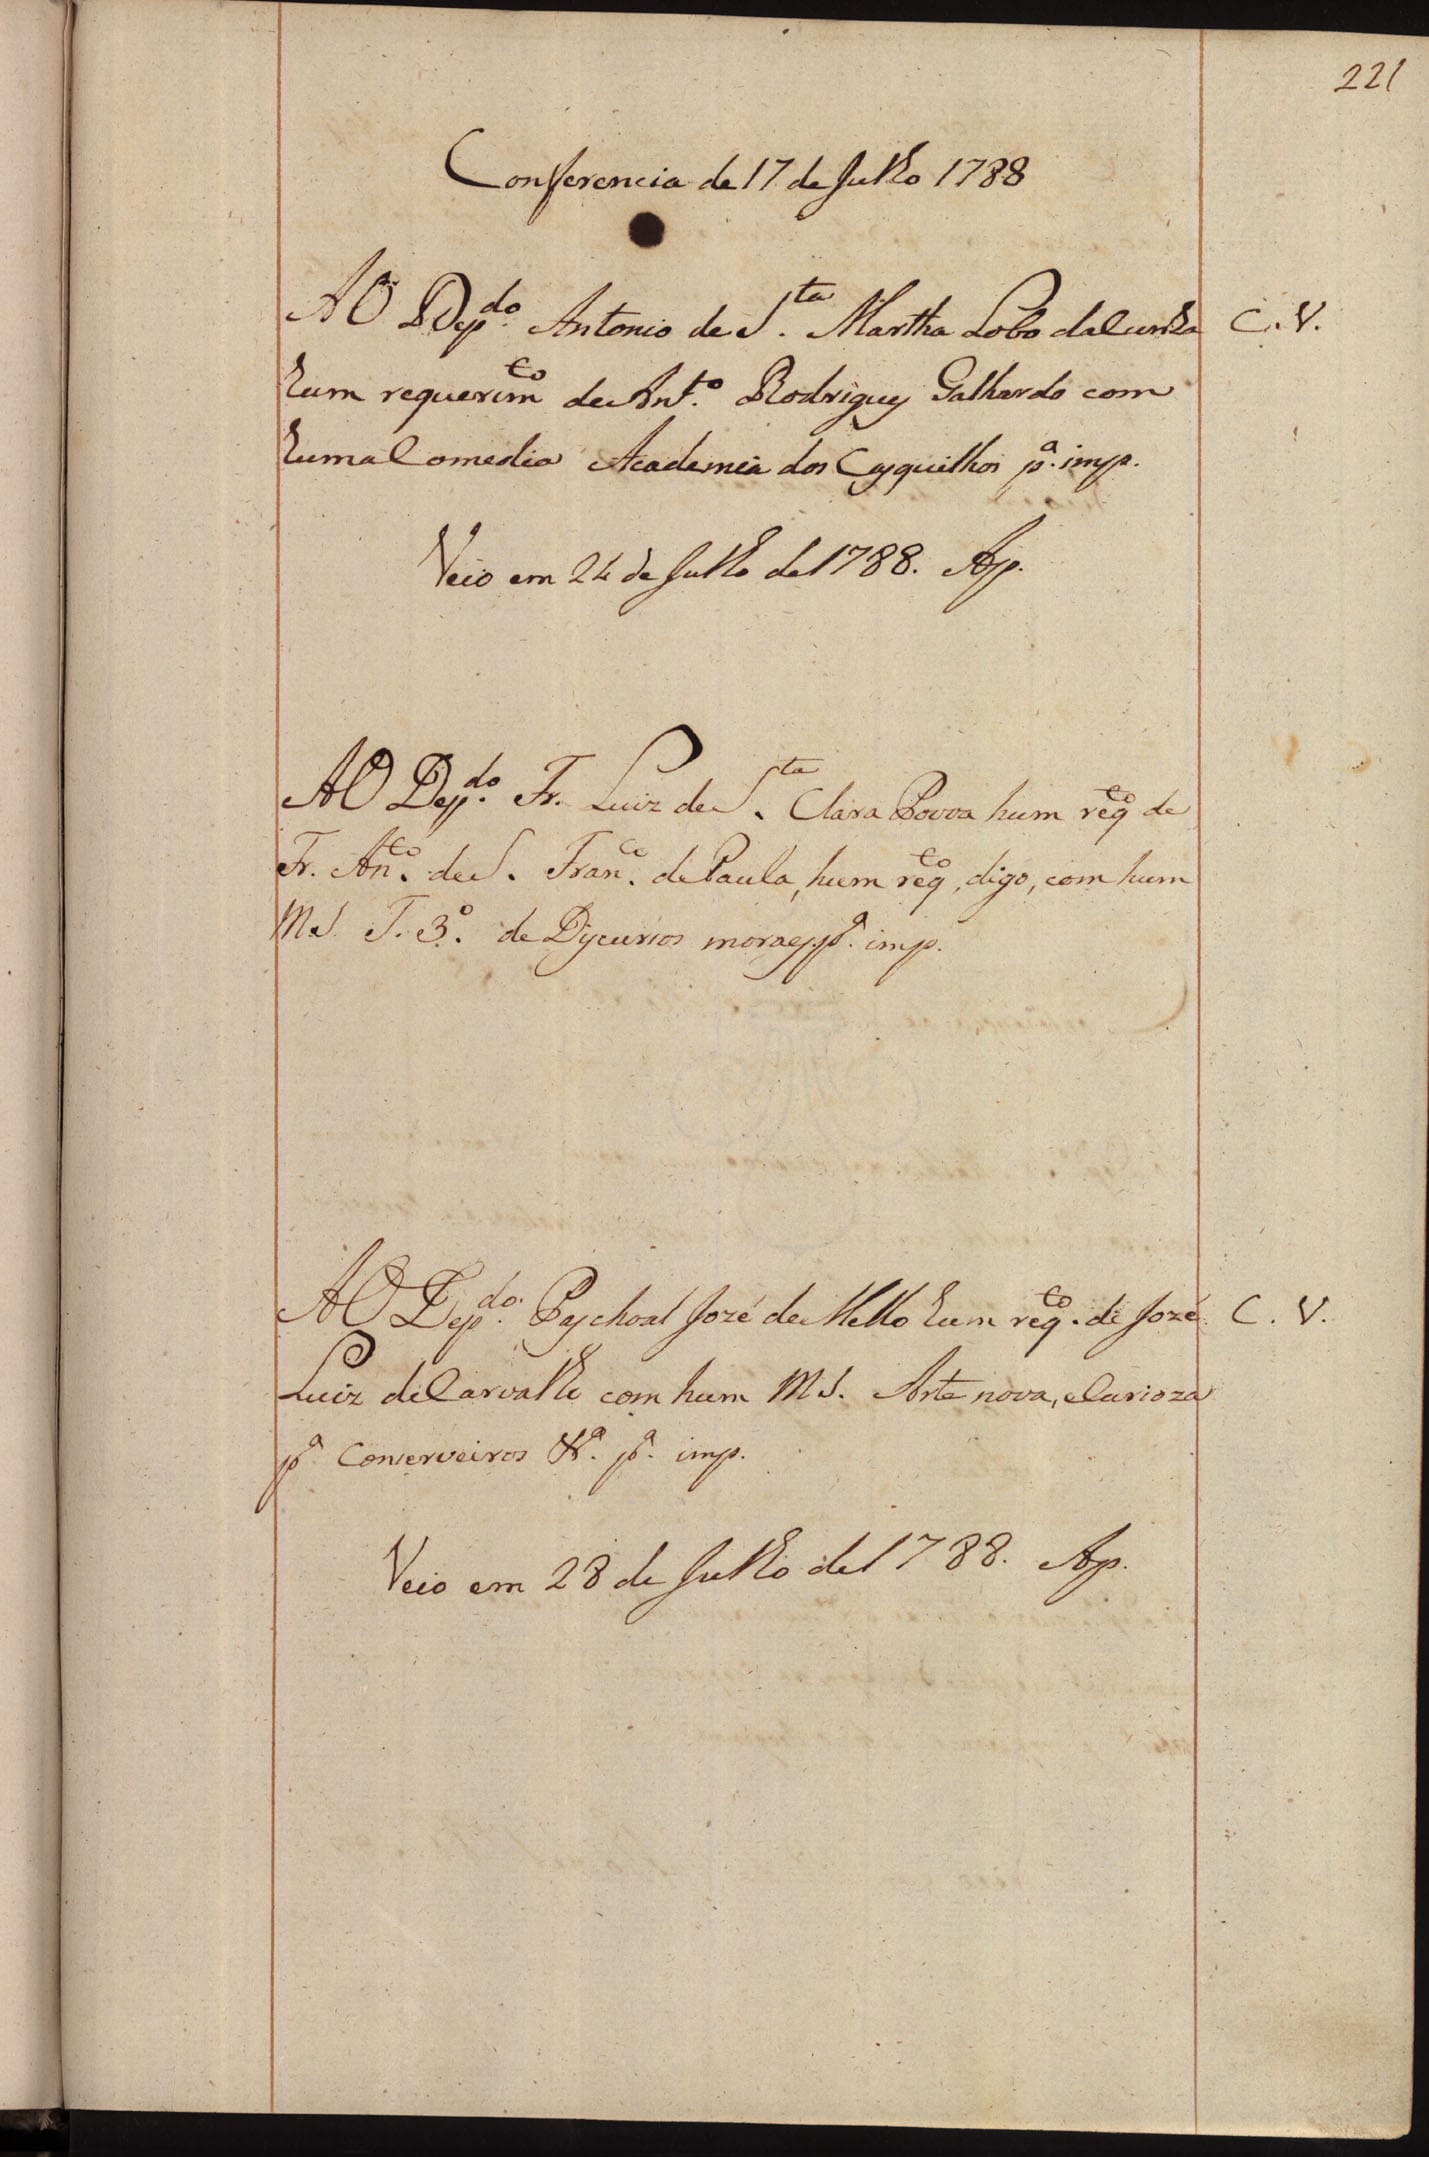 221
Conferencia de 17 de Julho 1788
AO Dep.do Antonio de S.ta Martha Lobo da Cunha C. V.
hum requerim.to de Ant.o Rodrigues Galhardo com
huma Comedia Academia dos Casquilhos p.a imp.
Veio em 24 de Julho de 1788. Ap.
AO Dep.do Fr. Luiz de S.ta Clara Povoa hum req.to de
Fr. An.to de S. Fran.co de Paula, hum req.to, digo, com hum
MS. T. 3.o de Discursos moraes p.a imp.
AO Dep.do Paschoal José de Mello hum req.to de José C. V.
Luiz de Carvalho com hum MS. Arte nova, e Curioza
p.a Conserveiros &.a p.a imp.
Veio em 28 de Julho de 1788. Ap.